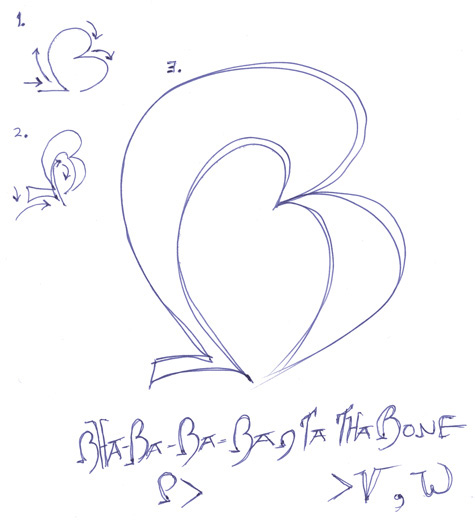 1.
2.
3.
BHA-BA-BA-BA-BAD TA THA BONE
P> >V, W